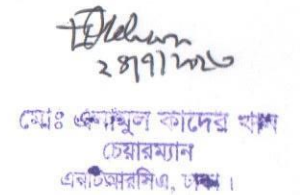 ২৪/৭/২০২৩
মোঃ এনামুল কাদের খান
চেয়ারম্যান
এনটিআরসিএ, ঢাকা।